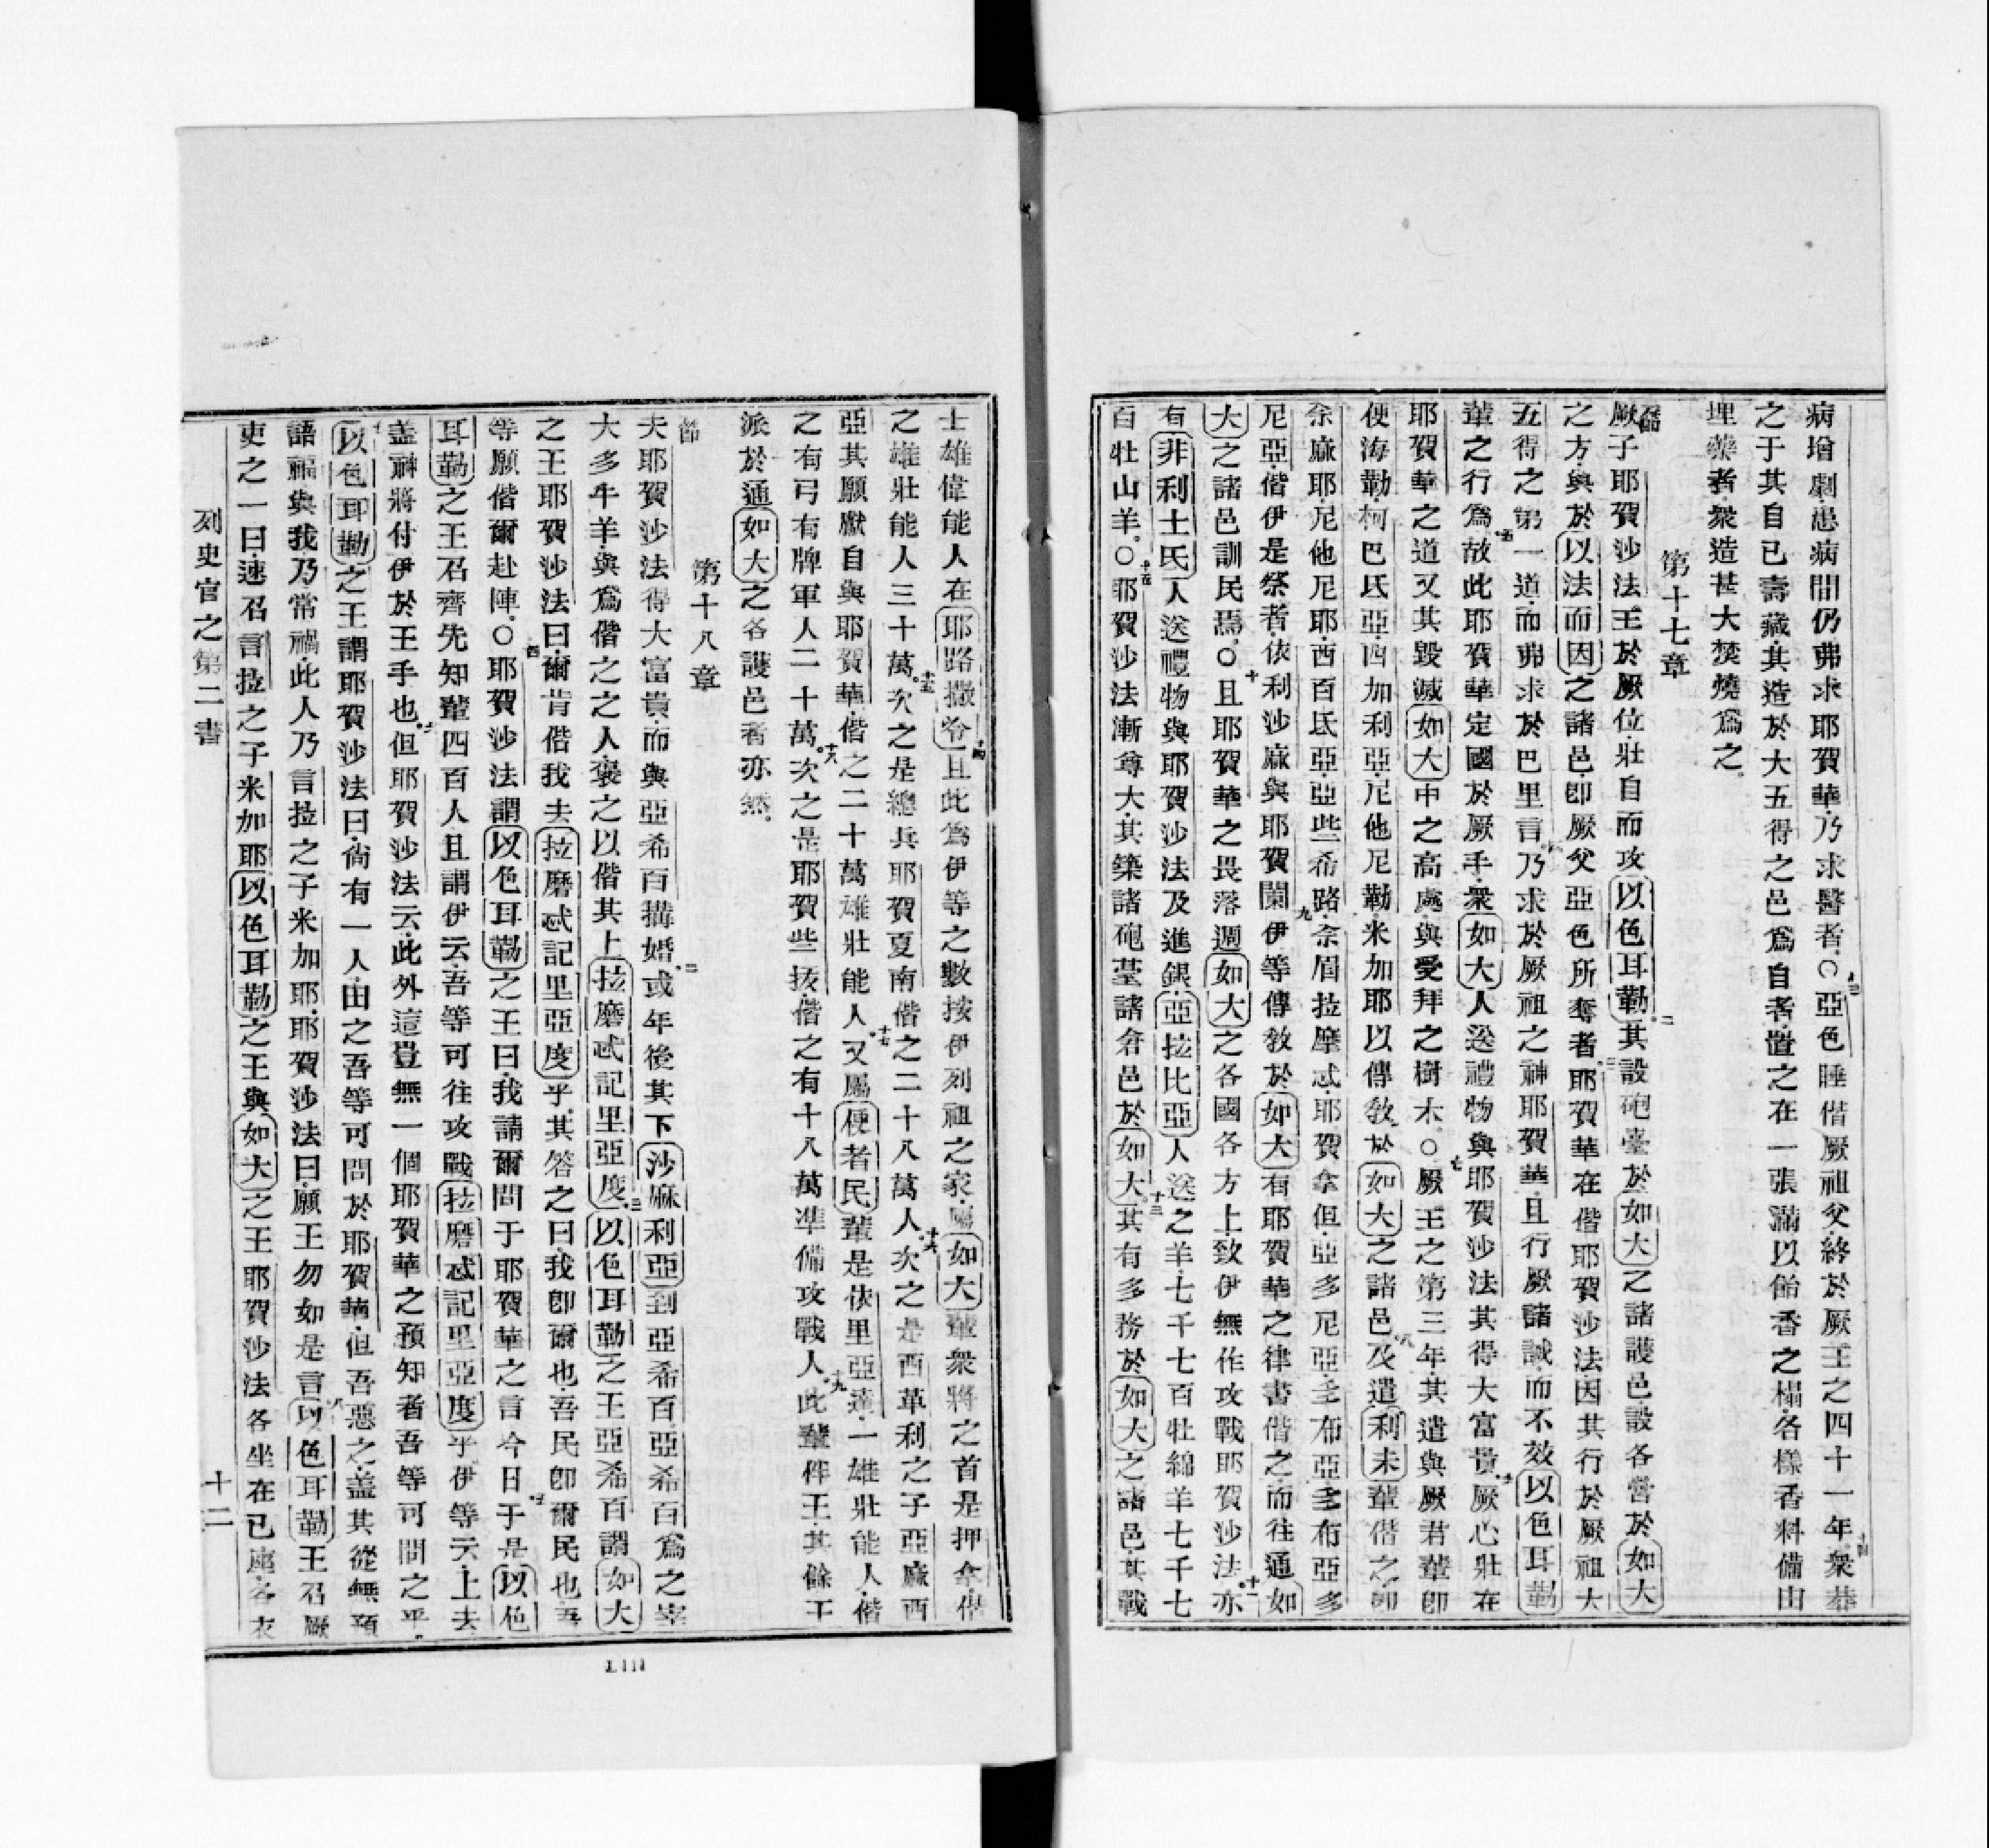 病增劇患病間仍弗求耶賀華乃求醫者○亞色睡偕厥祖父終於厥王之四十一年衆葬
之于其自已壽藏其造於大五得之邑爲自者置之在一張滿以飴香之榻各樣香料備由
埋藥者衆造甚大焚燒爲之
第十七章
厥子耶賀沙法王於厥位壯自而攻以色耳勒其設砲臺於如大之諸護邑設各營於如大
之方與於以法而因之諸邑卽厥父亞色所奪者耶賀華在偕耶賀沙法因其行於厥祖大
五得之第一道而弗求於巴里言乃求於厥祖之神耶賀華且行厥諸誡而不效以色耳勒
輩之行爲故此耶賀華定國於厥手衆如大人送禮物與耶賀沙法其得大富貴厥心壯在
耶賀華之道又其毀滅如大中之高處與受拜之樹木○厥王之第三年其遣與厥君輩卽
便海勒柯巴氐亞四加利亞尼他尼勒米加耶以傳教於如大之諸邑及遣利未輩偕之卽
余麻耶尼他尼耶西百氐亞亞些希路余眉拉摩忒耶賀拿但亞多尼亞多布亞多布亞多
尼亞偕伊是祭者依利沙麻與耶賀闌伊等傳教於如大有耶賀華之律書偕之而往通如
大之諸邑訓民焉○且耶賀華之畏落週如大之各國各方上致伊無作攻戰耶賀沙法亦
有非利士氏人送禮物與耶賀沙法及進銀亞拉比亞人送之羊七千七百牡綿羊七千七
百牡山羊○耶賀沙法漸尊大其築諸砲臺諸倉邑於如大其有多務於如大之諸邑其戰
士雄偉能人在耶路撒冷且此爲伊等之數按伊列祖之家屬如大輩衆將之首是押拿偕
之雄壯能人三十萬次之是總兵耶賀夏南偕之二十八萬人次之是西革利之子亞麻西
亞其願獻自與耶賀華偕之二十萬雄壯能人又屬便者民輩是依里亞達一雄壯能人偕
之有弓有牌軍人二十萬次之是耶賀些拔偕之有十八萬準備攻戰人此輩伴王其餘王
派於通如大之各護邑者亦然
第十八章
夫耶賀沙法得大富貴而與亞希百搆婚或年後其下沙麻利亞到亞希百亞希百爲之宰
大多牛羊與爲偕之之人褒之以偕其上拉磨忒記里亞度以色耳勒之王亞希百謂如大
之王耶賀沙法曰爾肯偕我去拉磨忒記里亞度乎其答之曰我卽爾也吾民卽爾民也吾
等願偕爾赴陣○耶賀沙法謂以色耳勒之王曰我請爾問于耶賀華之言今日于是以色
耳勒之王召齊先知輩四百人且謂伊云吾等可往攻戰拉磨忒記里亞度乎伊等云上去
盖神將付伊於王手也但耶賀沙法云此外這豈無一個耶賀華之預知者吾等可問之乎
以色耳勒之王謂耶賀沙法曰尙有一人由之吾等可問於耶賀華但吾惡之盖其從無預
語福與我乃常禍此人乃言拉之子米加耶耶賀沙法曰願王勿如是言以色耳勒王召厥
吏之一曰速召言拉之子米加耶以色耳勒之王與如大之王耶賀沙法各坐在已座各衣
列史官之第二書
十二